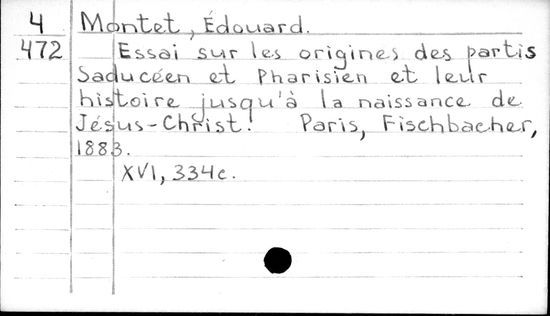 4 Montet, Édouard.
472 Essai sur les origines des partis
Saducéen et Pharisien et leur
histoire jusqu'à la naissance de
Jésus-Christ. Paris, Fischbacher,
1883.
XVI, 334c.